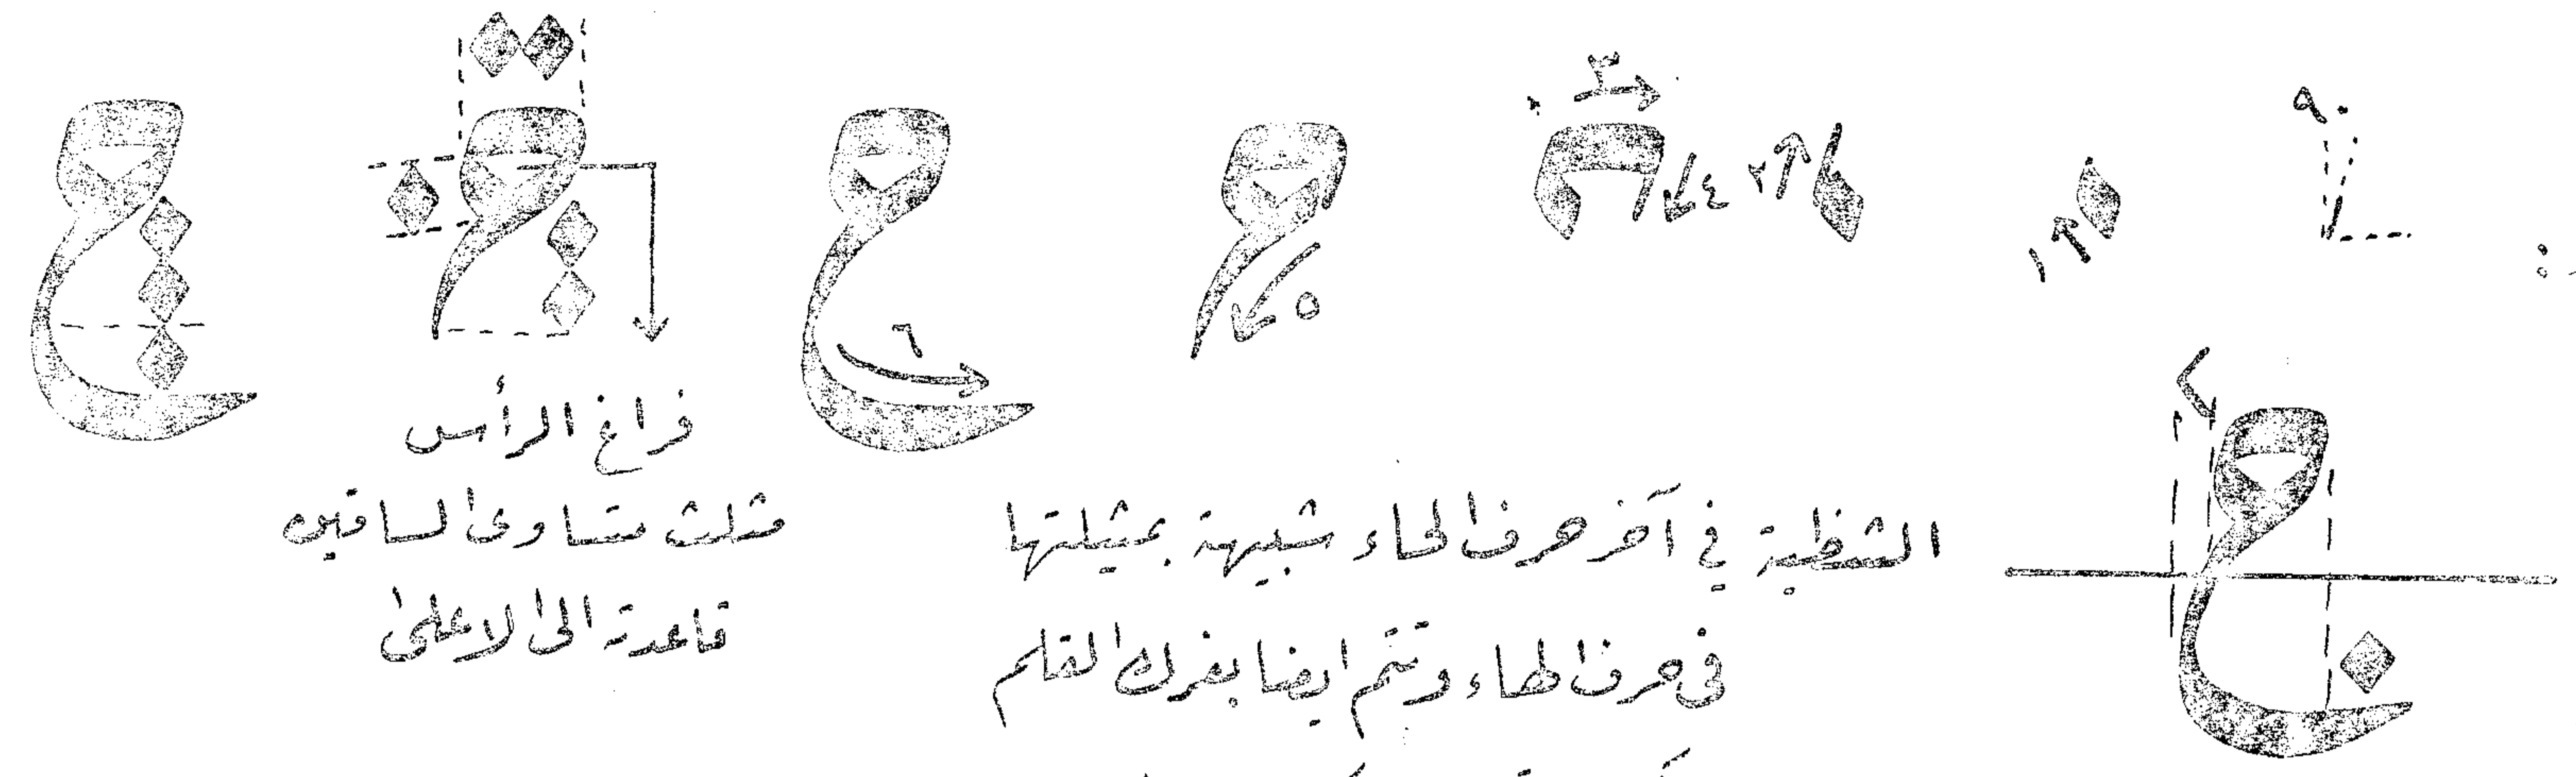 ٩٠
١
٢
٣
٤
٥
٦
فراغ الرأس
مثلث متساوى الساقين
قاعدته الى الاعلى
الشظية في آخر حرف الحاء شبيهة بمثيلتها
فى حرف الطاء وتتم ايضا بفرك القلم